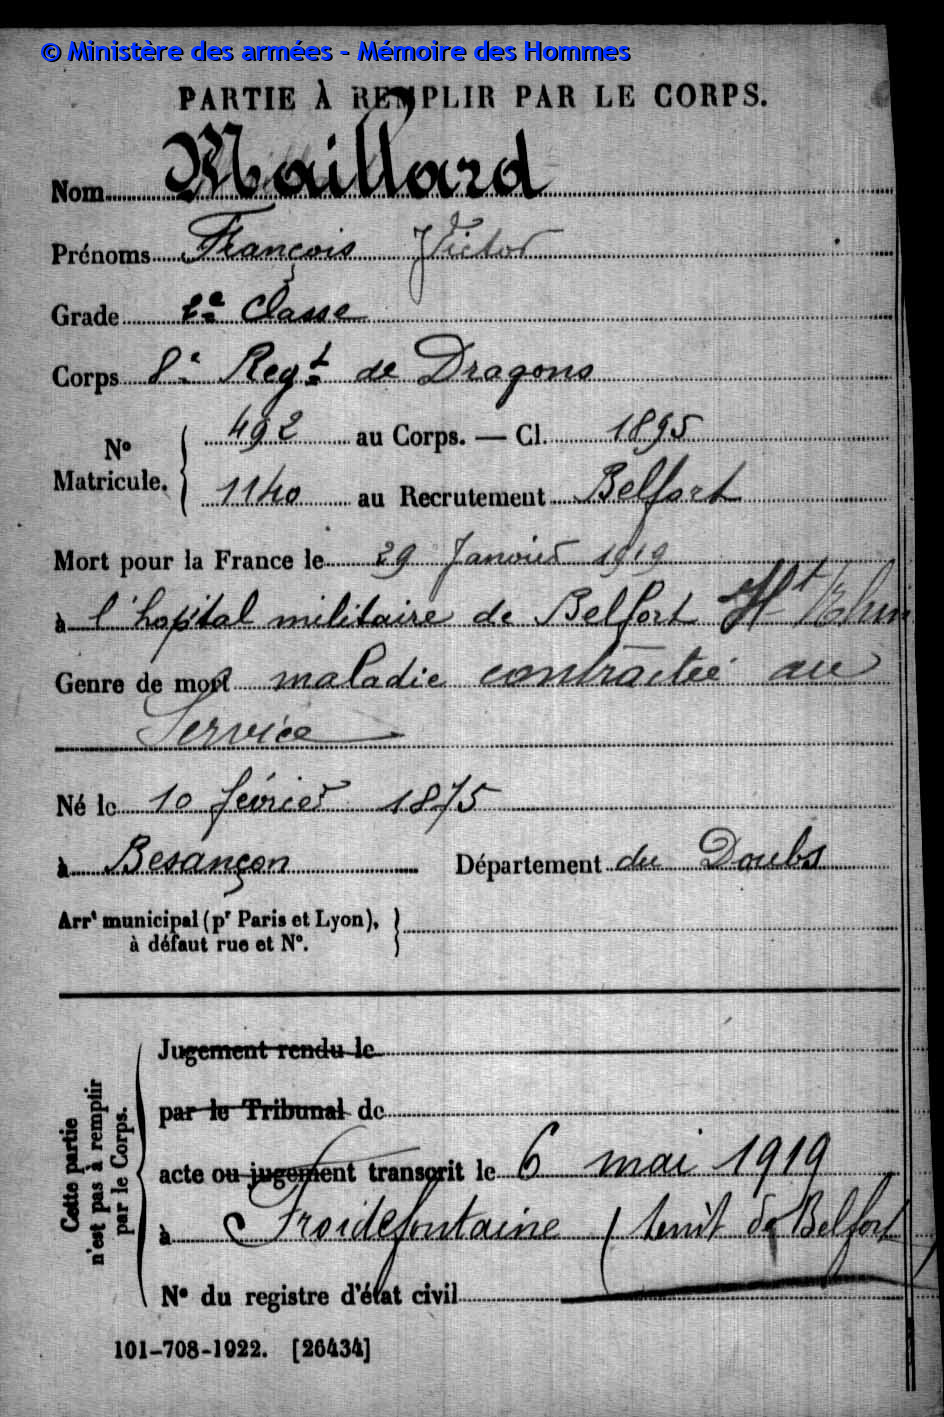 © Ministère des armées - Mémoire des Hommes
PARTIE À REMPLIR PAR LE CORPS.
Nom Maillard
Prénoms François Victor
Grade 2e Classe
Corps 8e Regt de Dragons
No Matricule. 492 au Corps. — Cl. 1895
1140 au Recrutement Belfort
Mort pour la France le 29 Janvier 1919
à l'hopital militaire de Belfort Ht Rhin
Genre de mort maladie contractée au
Service
Né le 10 février 1875
à Besançon Département du Doubs
Arrt municipal (pr Paris et Lyon),
à défaut rue et No.
Cette partie
n'est pas à remplir
par le Corps.
Jugement rendu le
par le Tribunal de
acte ou jugement transcrit le 6 mai 1919
à Froidefontaine (territ de Belfort)
No du registre d'état civil
101-708-1922. [26434]